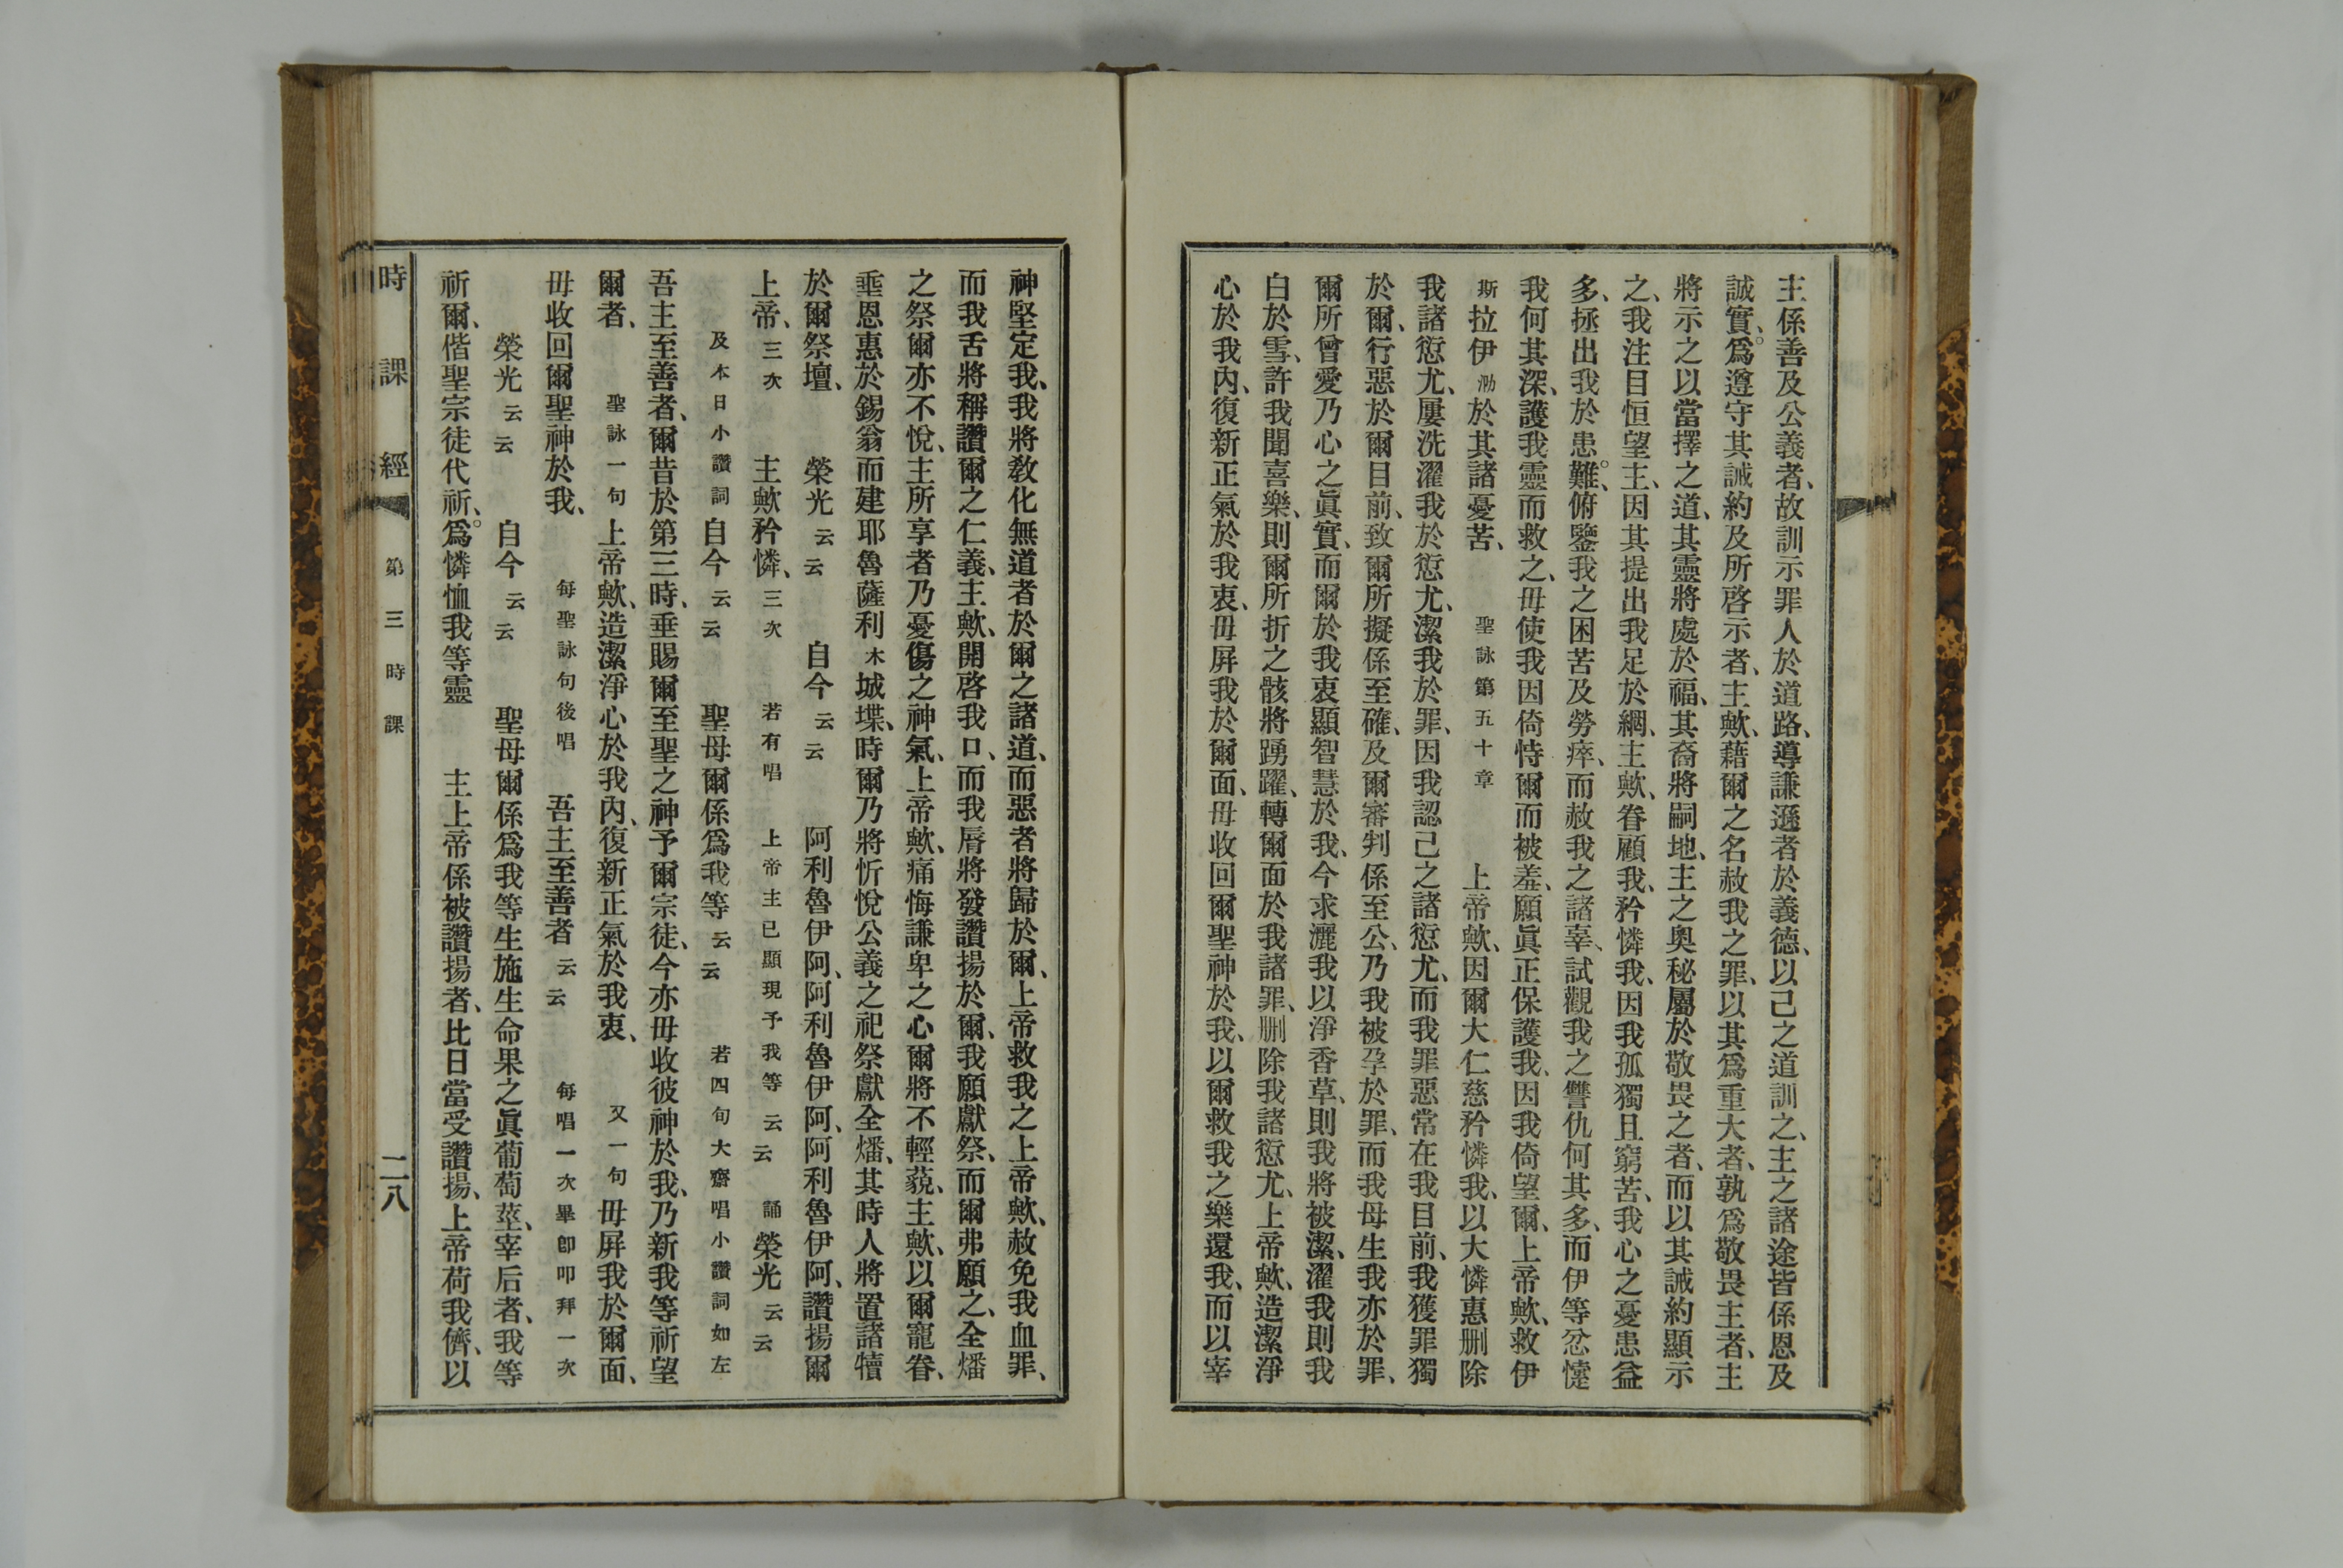 主係善及公義者、故訓示罪人於道路、導謙遜者於義德、以己之道訓之、主之諸途皆係恩及
誠實。爲遵守其誡約及所啓示者、主歟、藉爾之名赦我之罪、以其爲重大者、孰爲敬畏主者、主
將示之以當擇之道、其靈將處於福、其裔將嗣地、主之奧秘屬於敬畏之者、而以其誠約顯示
之、我注目恒望主、因其提出我足於綱、主歟、眷顧我、矜憐我、因我孤獨且窮苦、我心之憂患益
多、拯出我於患難。俯鑒我之困苦及勞瘁、而赦我之諸辜、試觀我之讐仇何其多、而伊等忿懥
我何其深、護我靈而救之、毋使我因倚恃爾而被羞、願眞正保護我、因我倚望爾、上帝歟、救伊
斯拉伊泐於其諸憂苦、 聖詠第五十章 上帝歟、因爾大仁慈矜憐我、以大憐惠刪除
我諸愆尤、屢洗濯我於愆尤、潔我於罪、因我認己之諸愆尤、而我罪惡常在我目前、我獲罪獨
於爾、行惡於爾目前、致爾所擬係至確、及爾審判係至公、乃我被孕於罪、而我母生我亦於罪、
爾所曾愛乃心之眞實、而爾於我衷顯智慧於我、今求灑我以淨香草、則我將被潔、濯我則我
白於雪、許我聞喜樂、則爾所折之骸將踴躍、轉爾面於我諸罪、刪除我諸愆尤、上帝歟、造潔淨
心於我內、復新正氣於我衷、毋屏我於爾面、毋收回爾聖神於我、以爾救我之樂還我、而以宰
神堅定我、我將敎化無道者於爾之諸道、而惡者將歸於爾、上帝救我之上帝歟、赦免我血罪、
而我舌將稱讚爾之仁義、主歟、開啓我口、而我脣將發讚揚於爾、我願獻祭、而爾弗願之、全燔
之祭爾亦不悅、主所享者乃憂傷之神氣、上帝歟、痛悔謙卑之心爾將不輕藐、主歟、以爾寵眷、
垂恩惠於錫翁而建耶魯薩利木城堞、時爾乃將忻悅公義之祀祭獻全燔、其時人將置諸犢
於爾祭壇、 榮光云云 自今云云 阿利魯伊阿、阿利魯伊阿、阿利魯伊阿、讚揚爾
上帝、三次 主歟矜憐、三次 若有唱 上帝主已顯現予我等云云 誦榮光云云
及本日小讚詞自今云云 聖母爾係爲我等云云 若四旬大齋唱小讚詞如左
吾主至善者、爾昔於第三時、垂賜爾至聖之神予爾宗徒、今亦毋收彼神於我、乃新我等祈望
爾者、 聖詠一句上帝歟、造潔淨心於我內、復新正氣於我衷、 又一句毋屏我於爾面、
毋收回爾聖神於我、 每聖詠句後唱 吾主至善者云云 每唱一次畢卽叩拜一次
榮光云云 自今云云 聖母爾係爲我等生施生命果之眞葡萄莖、宰后者、我等
祈爾、偕聖宗徒代祈。爲憐恤我等靈 主上帝係被讚揚者、比日當受讚揚、上帝荷我儕、以
時課經 第三時課 二八